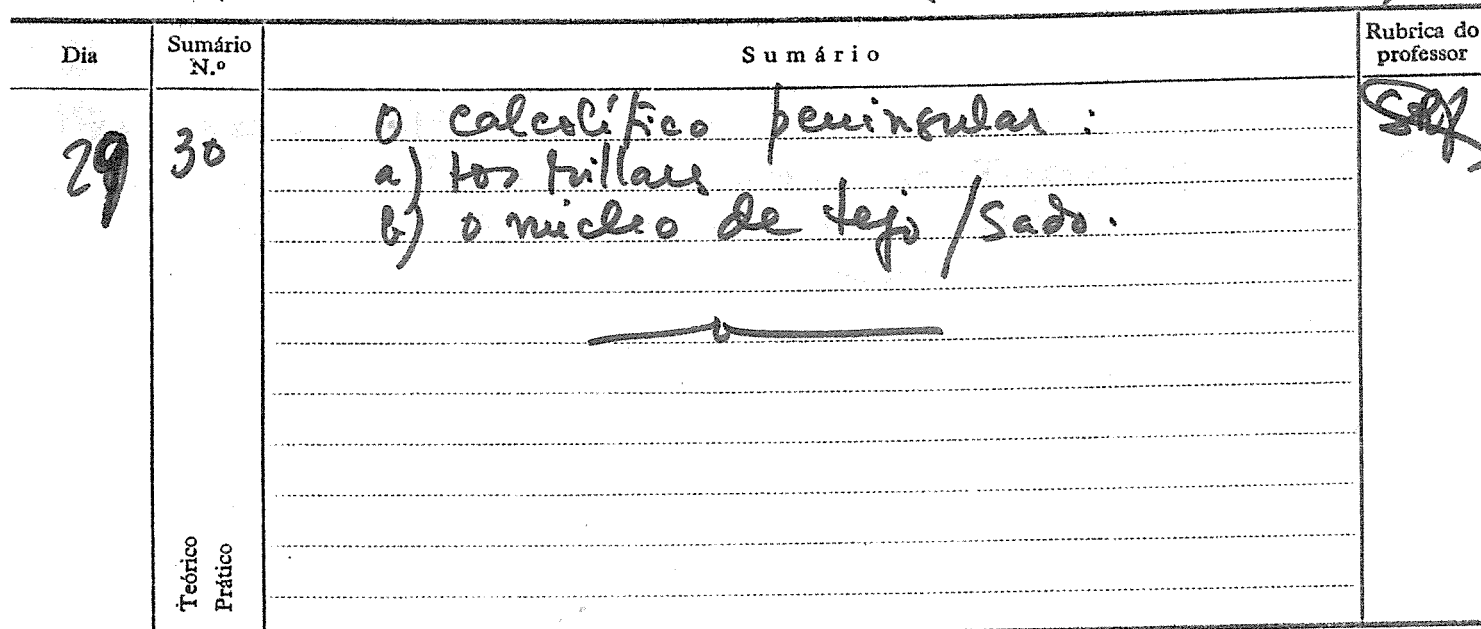 Dia
Sumário N.º
Sumário
Rubrica do professor
29
30
O calcolítico peninsular :
a) Los Millares
b) o núcleo de tejo / Sado.
Teórico
Prático